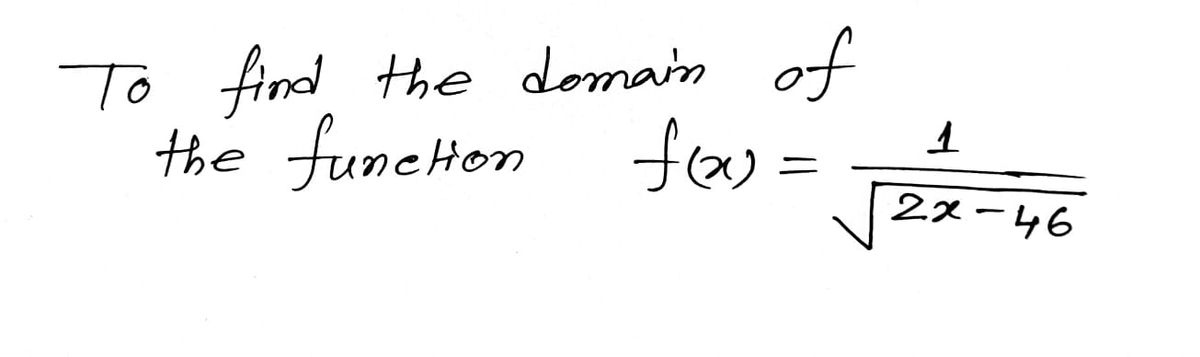 To find the domain of
the function f(x) = 1/√(2x-46)